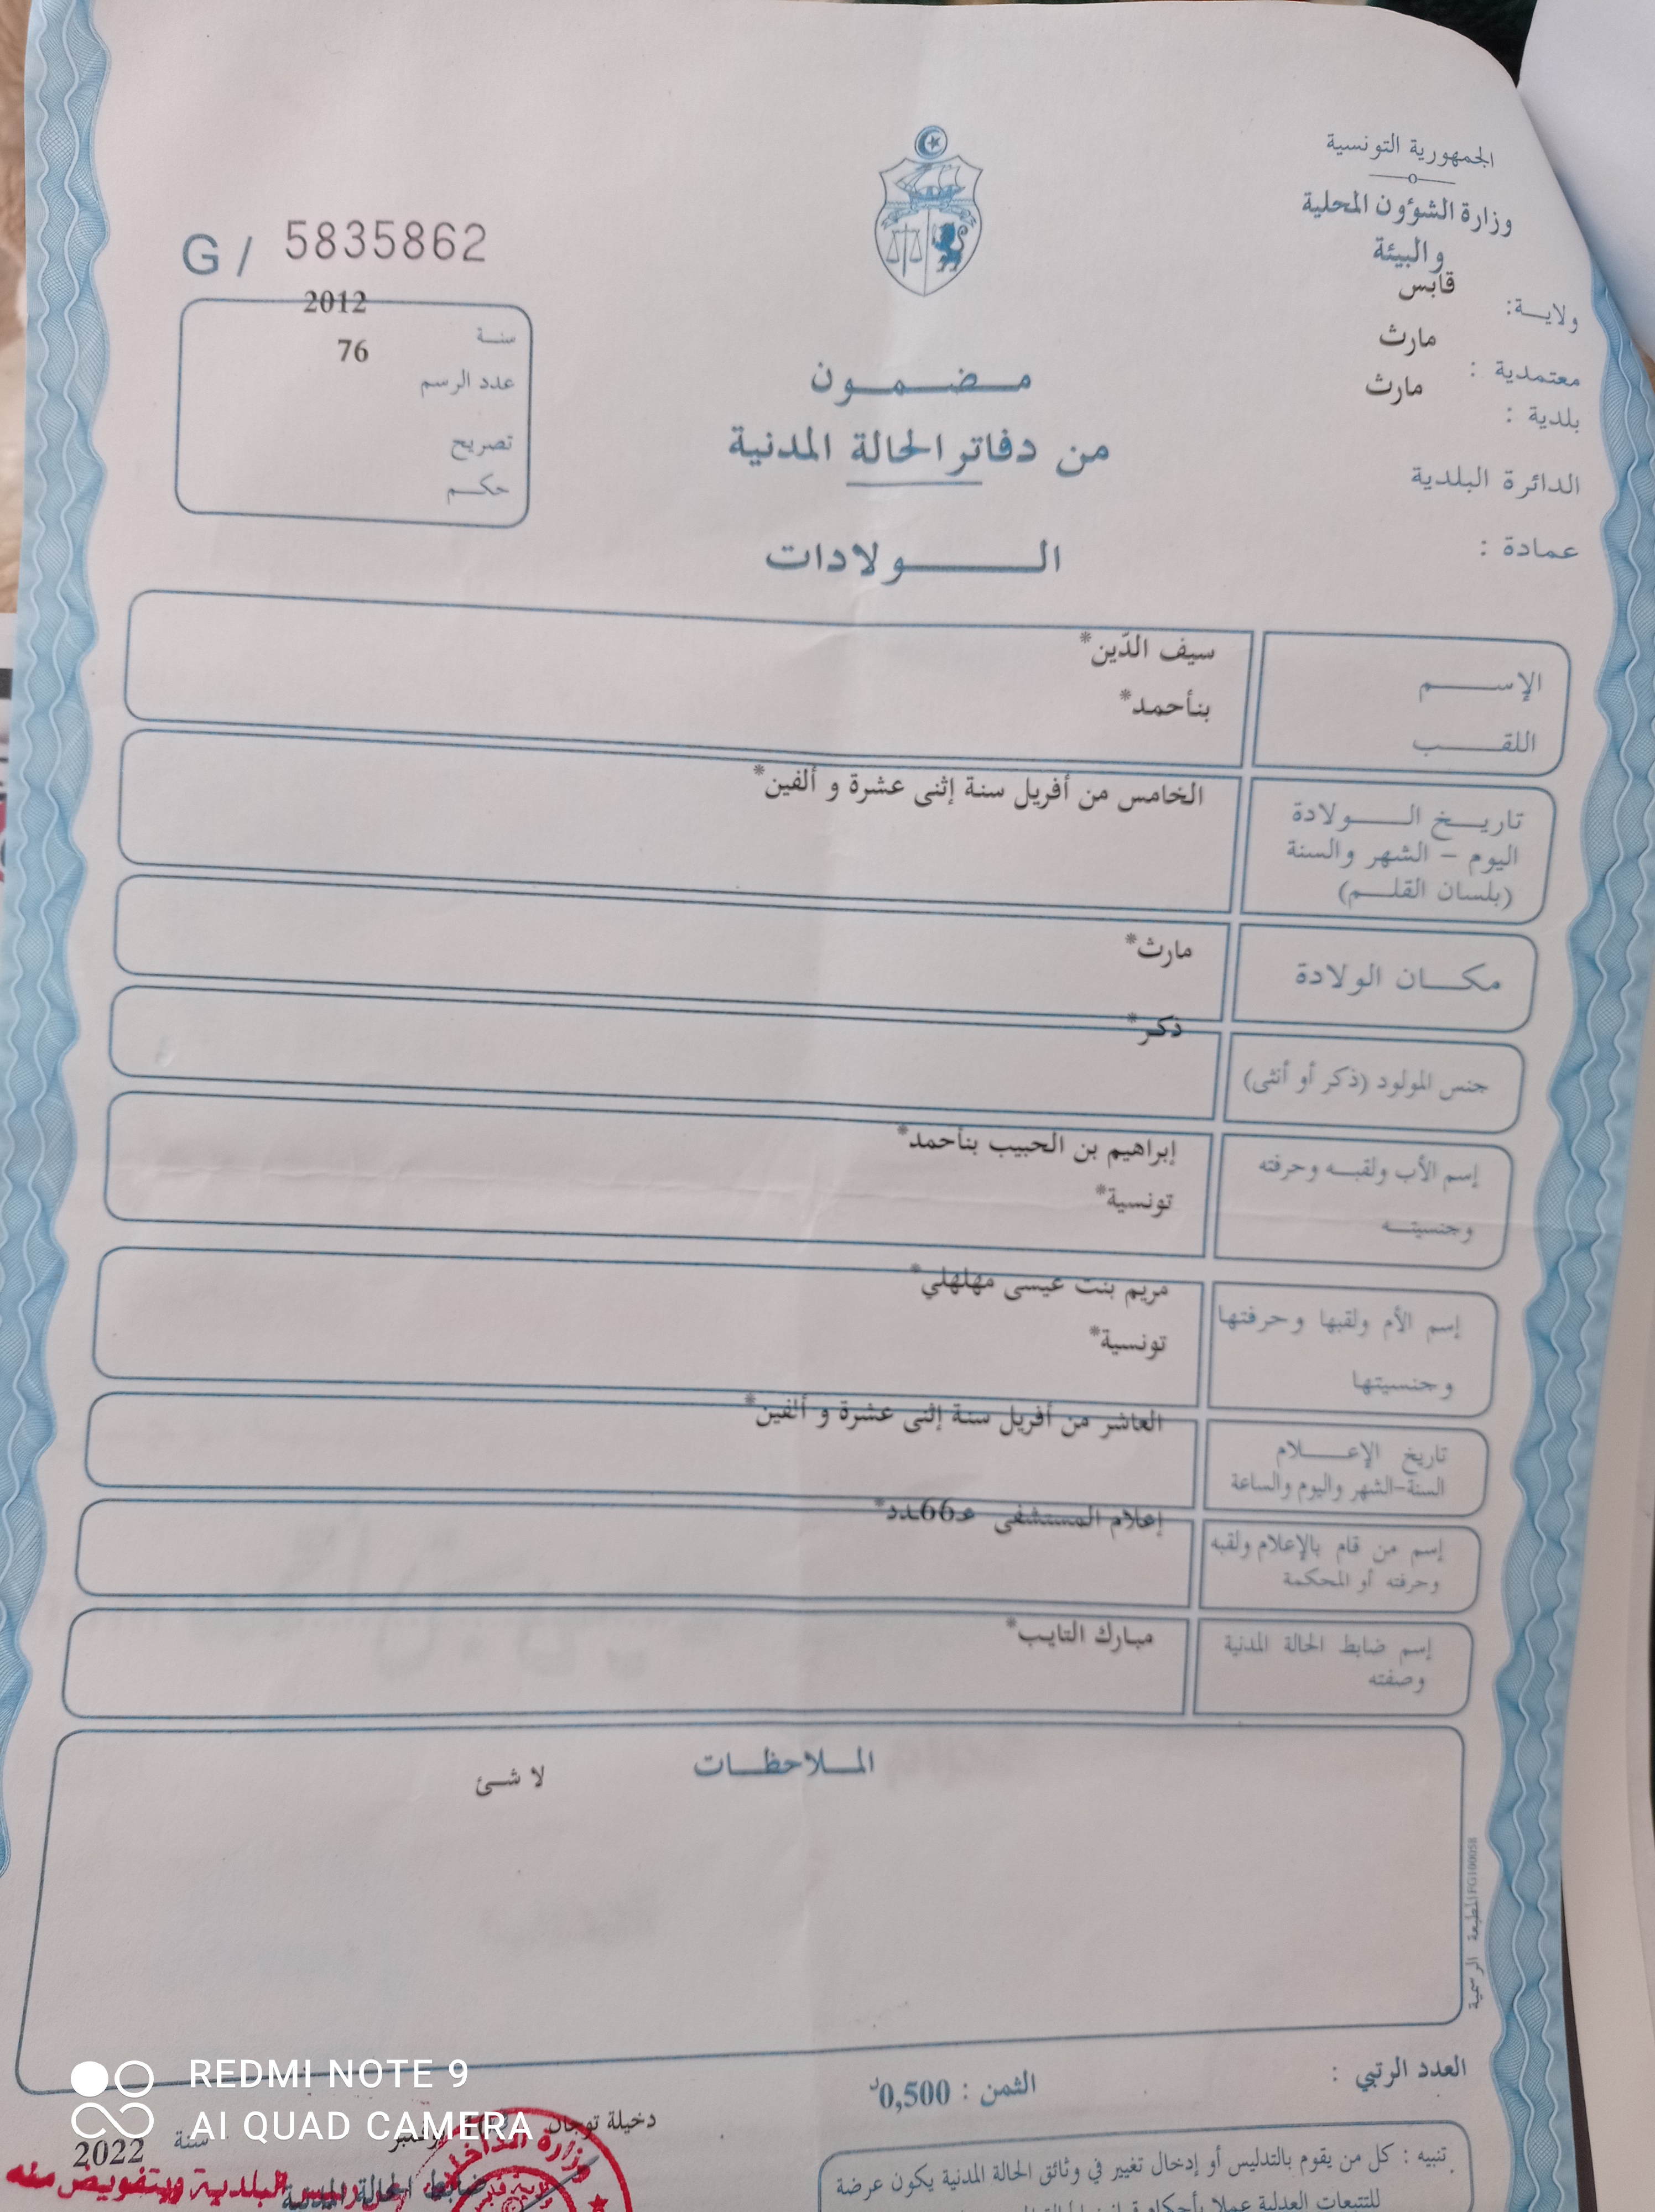 الجمهورية التونسية
وزارة الشؤون المحلية
والبيئة
ولاية: قابس
معتمدية : مارث
بلدية : مارث
الدائرة البلدية
عمادة :
G / 5835862
سنة 2012
عدد الرسم 76
تصريح
حكم
مضمون
من دفاتر الحالة المدنية
الولادات
الإسم
سيف الدّين*
اللقب
بنأحمد*
تاريخ الولادة
اليوم – الشهر والسنة
(بلسان القلم)
الخامس من أفريل سنة إثنى عشرة و ألفين*
مكان الولادة
مارث*
جنس المولود (ذكر أو أنثى)
ذكر*
إسم الأب ولقبه وحرفته
وجنسيته
إبراهيم بن الحبيب بنأحمد*
تونسية*
إسم الأم ولقبها وحرفتها
وجنسيتها
مريم بنت عيسى مهلهلي*
تونسية*
تاريخ الإعلام
السنة-الشهر واليوم والساعة
العاشر من أفريل سنة إثنى عشرة و ألفين*
إسم من قام بالإعلام ولقبه
وحرفته أو المحكمة
إعلام المستشفى عـ66ـدد*
إسم ضابط الحالة المدنية
وصفته
مبارك التايب*
الملاحظات
لا شئ
المطبعة الرسمية FG100058
العدد الرتبي :
الثمن : 0,500د
دخيلة توجان
سنة 2022
REDMI NOTE 9
AI QUAD CAMERA
وزارة الداخلية
ضابط الحالة المدنية
رئيس البلدية وبتفويض منه
تنبيه : كل من يقوم بالتدليس أو إدخال تغيير في وثائق الحالة المدنية يكون عرضة
للتتبعات العدلية عملا بأحكام